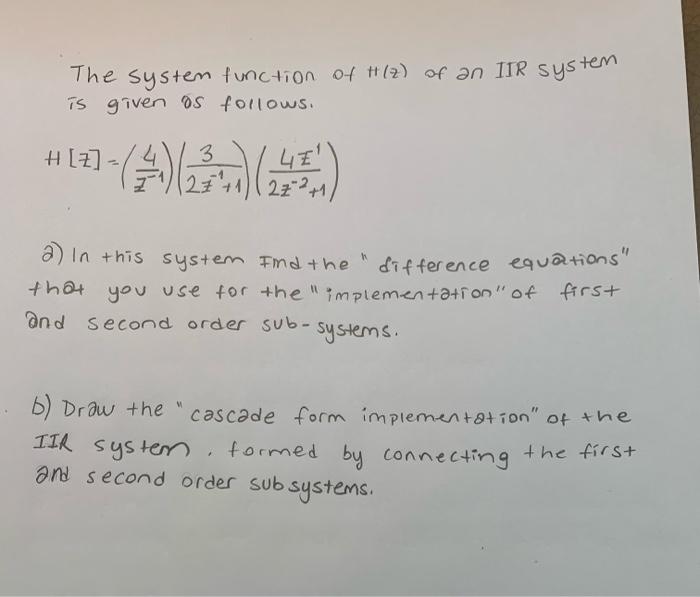 The system function of H(z) of an IIR system
is given as follows.
H[Z] = (4/z⁻¹) (3/2z⁻¹+1) (4z¹/2z⁻²+1)
a) In this system Find the "difference equations"
that you use for the "implementation" of first
and second order sub-systems.
b) Draw the "cascade form implementation" of the
IIR system, formed by connecting the first
and second order subsystems.